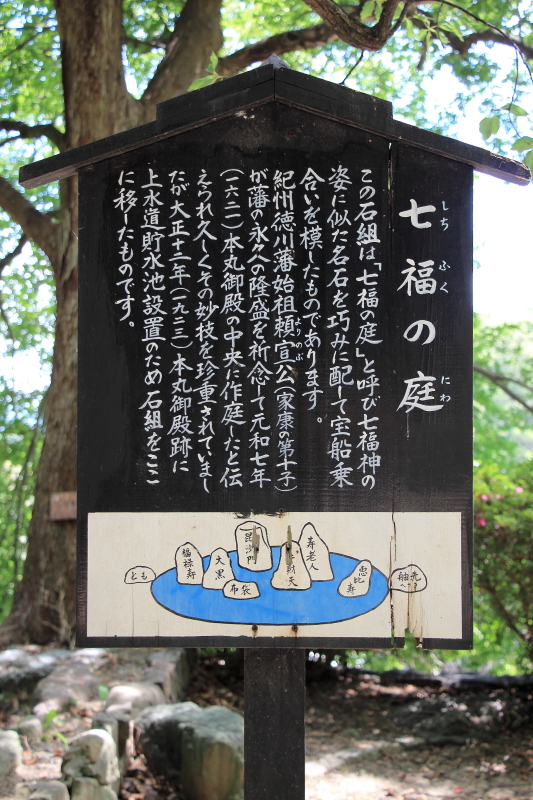 七福の庭
しち
ふく
にわ
この石組は「七福の庭」と呼び七福神の
姿に似た名石を巧みに配して宝船乗
合いを模したものであります。
紀州徳川藩始祖頼宣公(家康の第十子)
よりのぶ
が藩の永久の隆盛を祈念して元和七年
(一六二一)本丸御殿の中央に作庭したと伝
えられ久しくその妙技を珍重されていまし
たが大正十二年(一九二三)本丸御殿跡に
上水道貯水池設置のため石組をここ
に移したものです。
とも
福禄寿
大黒
布袋
毘沙門
財天
寿老人
恵比寿
舳先
へ